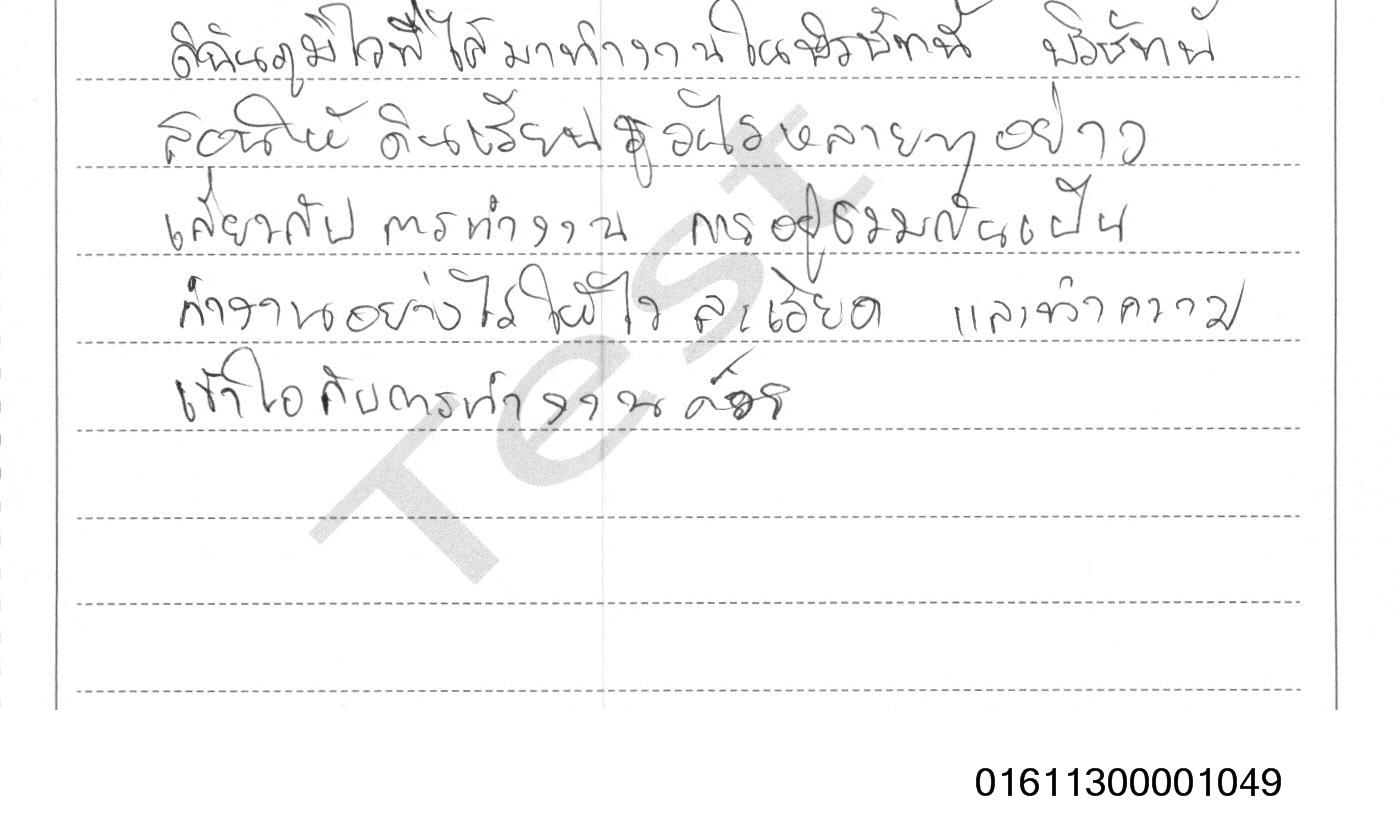 ดิฉันภูมิใจที่ได้มาทำงานในบริษัทนี้ บริษัทนี้
สอนให้ ดิฉันเรียนรู้ อะไรหลายๆ อย่าง
เกี่ยวกับ การทำงาน การอยู่ร่วมกันเป็น
ทำงานอย่างไรให้ได้ ละเอียด และทำความ
เข้าใจ กับการทำงาน
Test
01611300001049